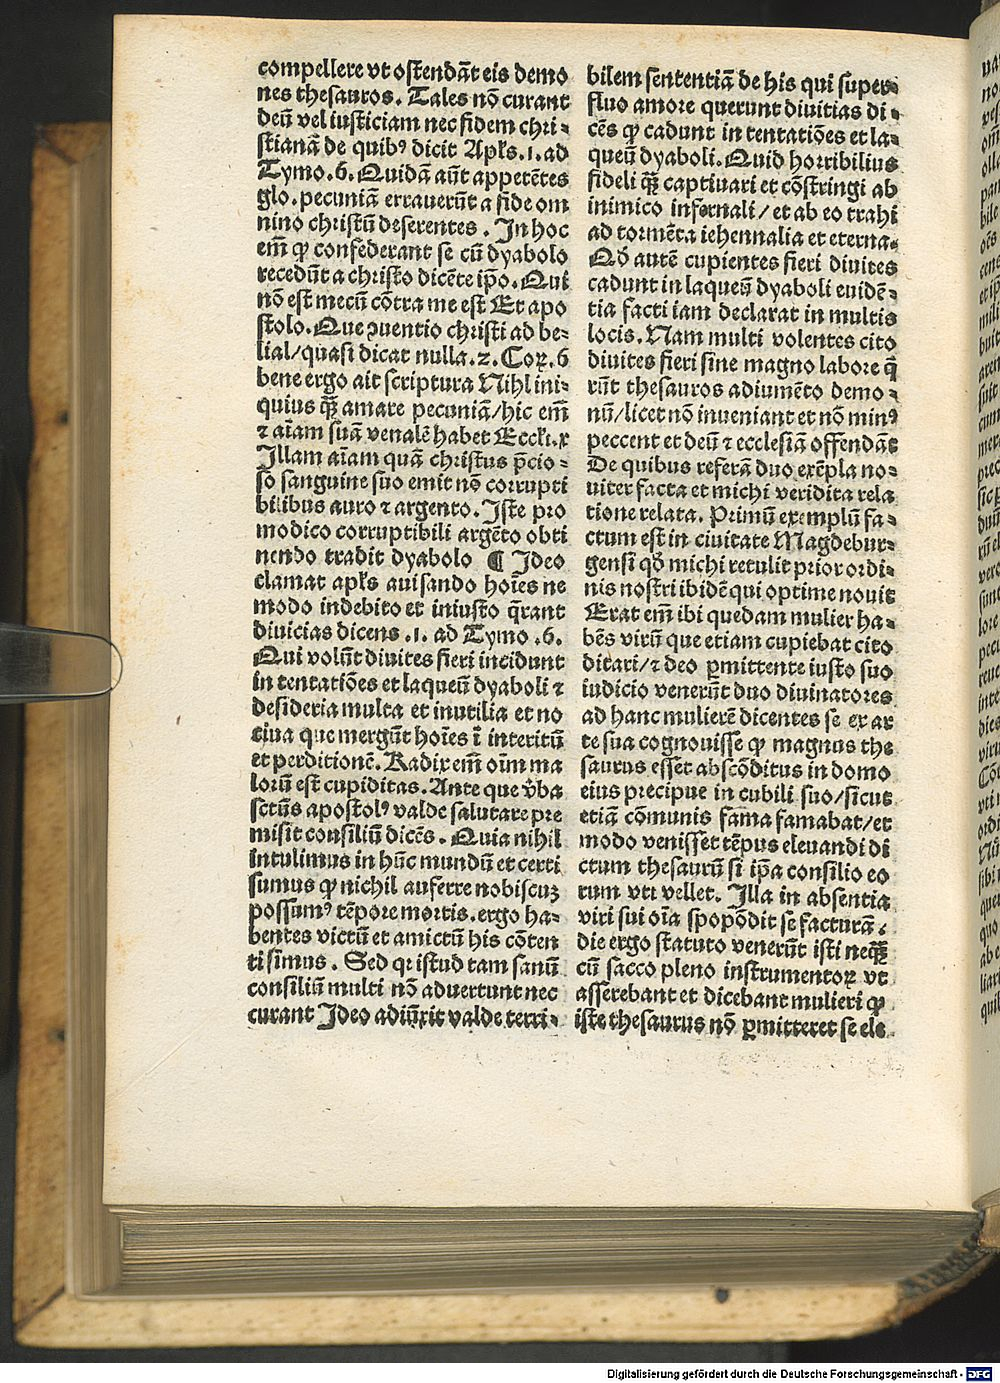 compellere vt ostendāt eis demo
nes thesauros. Tales nō curant
deū vel iusticiam nec fidem chri-
stianā de quibꝰ dicit Apłs. 1. ad
Tymo. 6. Quidā aūt appetētes
glo. pecuniā errauerūt a fide om
nino christū deserentes. In hoc
em̄ ꝙ confederant se cū dyabolo
recedūt a christo dicēte ip̄o. Qui
nō est mecū cōtra me est Et apo
stolo. Que ↄuentio christi ad be-
lial/quasi dicat nulla. 2. Coꝝ. 6
bene ergo ait scriptura Nihl ini-
quius q̄ꝫ amare pecuniā/hic em̄
⁊ aīam suā venalē habet Eccłi. x
Illam aīam quā christus p̄cio-
so sanguine suo emit nō corrupti
bilibus auro ⁊ argento. Iste pro
modico corruptibili argēto obti
nendo tradit dyabolo ¶ Ideo
clamat apłs auisando hoīes ne
modo indebito et iniusto q̄rant
diuicias dicens .1. ad Tymo .6.
Qui volūt diuites fieri incidunt
in tentatiōes et laqueū dyaboli ⁊
desideria multa et inutilia et no
ciua que mergūt hoīes ī interitū
et perditionē. Radix em̄ oīm ma
lorū est cupiditas. Ante que v̄ba
sctūs apostolꝰ valde salutare pre
misit consiliū dicēs. Quia nihil
intulimus in hūc mundū et certi
sumus ꝙ nichil auferre nobiscuꝫ
possumꝰ tēpore mortis. ergo ha-
bentes victū et amictū his cōten
ti simus. Sed qꝛ istud tam sanū
consiliū multi nō aduertunt nec
curant Ideo adiūxit valde terri-
bilem sententiā de his qui super-
fluo amore querunt diuitias di-
cēs ꝙ cadunt in tentatiōes et la-
queū dyaboli. Quid horribilius
fideli q̄ꝫ captiuari et cōstringi ab
inimico infernali/et ab eo trahi
ad tormēta iehennalia et eterna-
Qō autē cupientes fieri diuites
cadunt in laqueū dyaboli euidē-
tia facti iam declarat in multis
locis. Nam multi volentes cito
diuites fieri sine magno labore q̄
rūt thesauros adiumēto demo-
nū/licet nō inueniant et nō minꝰ
peccent et deū ⁊ ecclesiā offendāt
De quibus referā duo exēpla no-
uiter facta et michi veridita rela
tione relata. Primū exemplū fa-
ctum est in ciuitate Magdebur-
gensi qō michi retulit prior ordi-
nis nostri ibidē qui optime nouit
Erat em̄ ibi quedam mulier ha-
bēs virū que etiam cupiebat cito
ditari/⁊ deo ꝑmittente iusto suo
iudicio venerūt duo diuinatores
ad hanc mulierē dicentes se ex ar
te sua cognouisse ꝙ magnus the
saurus esset abscōditus in domo
eius precipue in cubili suo/sicut
etiā cōmunis fama famabat/et
modo venisset tēpus eleuandi di
ctum thesaurū si ip̄a consilio eo
rum vti vellet. Illa in absentia
viri sui oīa spopōdit se facturā.
die ergo statuto venerūt isti neq̄ꝫ
cū sacco pleno instrumentoꝝ vt
asserebant et dicebant mulieri ꝙ
iste thesaurus nō ꝑmitteret se ele-
Digitalisierung gefördert durch die Deutsche Forschungsgemeinschaft - DFG